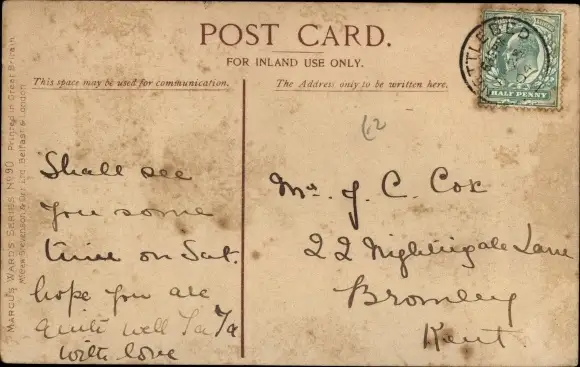 POST CARD.
FOR INLAND USE ONLY.
This space may be used for communication.
The Address only to be written here.
MARCUS WARD'S SERIES, Nº 90. Printed in Great Britain
London
Belfast &
NETTLEBED
HALF PENNY
62
Shall see
you some
time on Sat.
hope you are
quite well Ta Ta
with love
J. C. Cox
22 Nightingale Lane
Bromley
Kent.